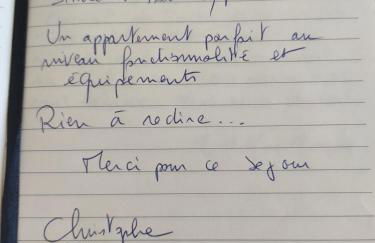 Un appartement parfait au
niveau fonctionnalité et
équipements
Rien à redire...
Merci pour ce séjour
Christophe